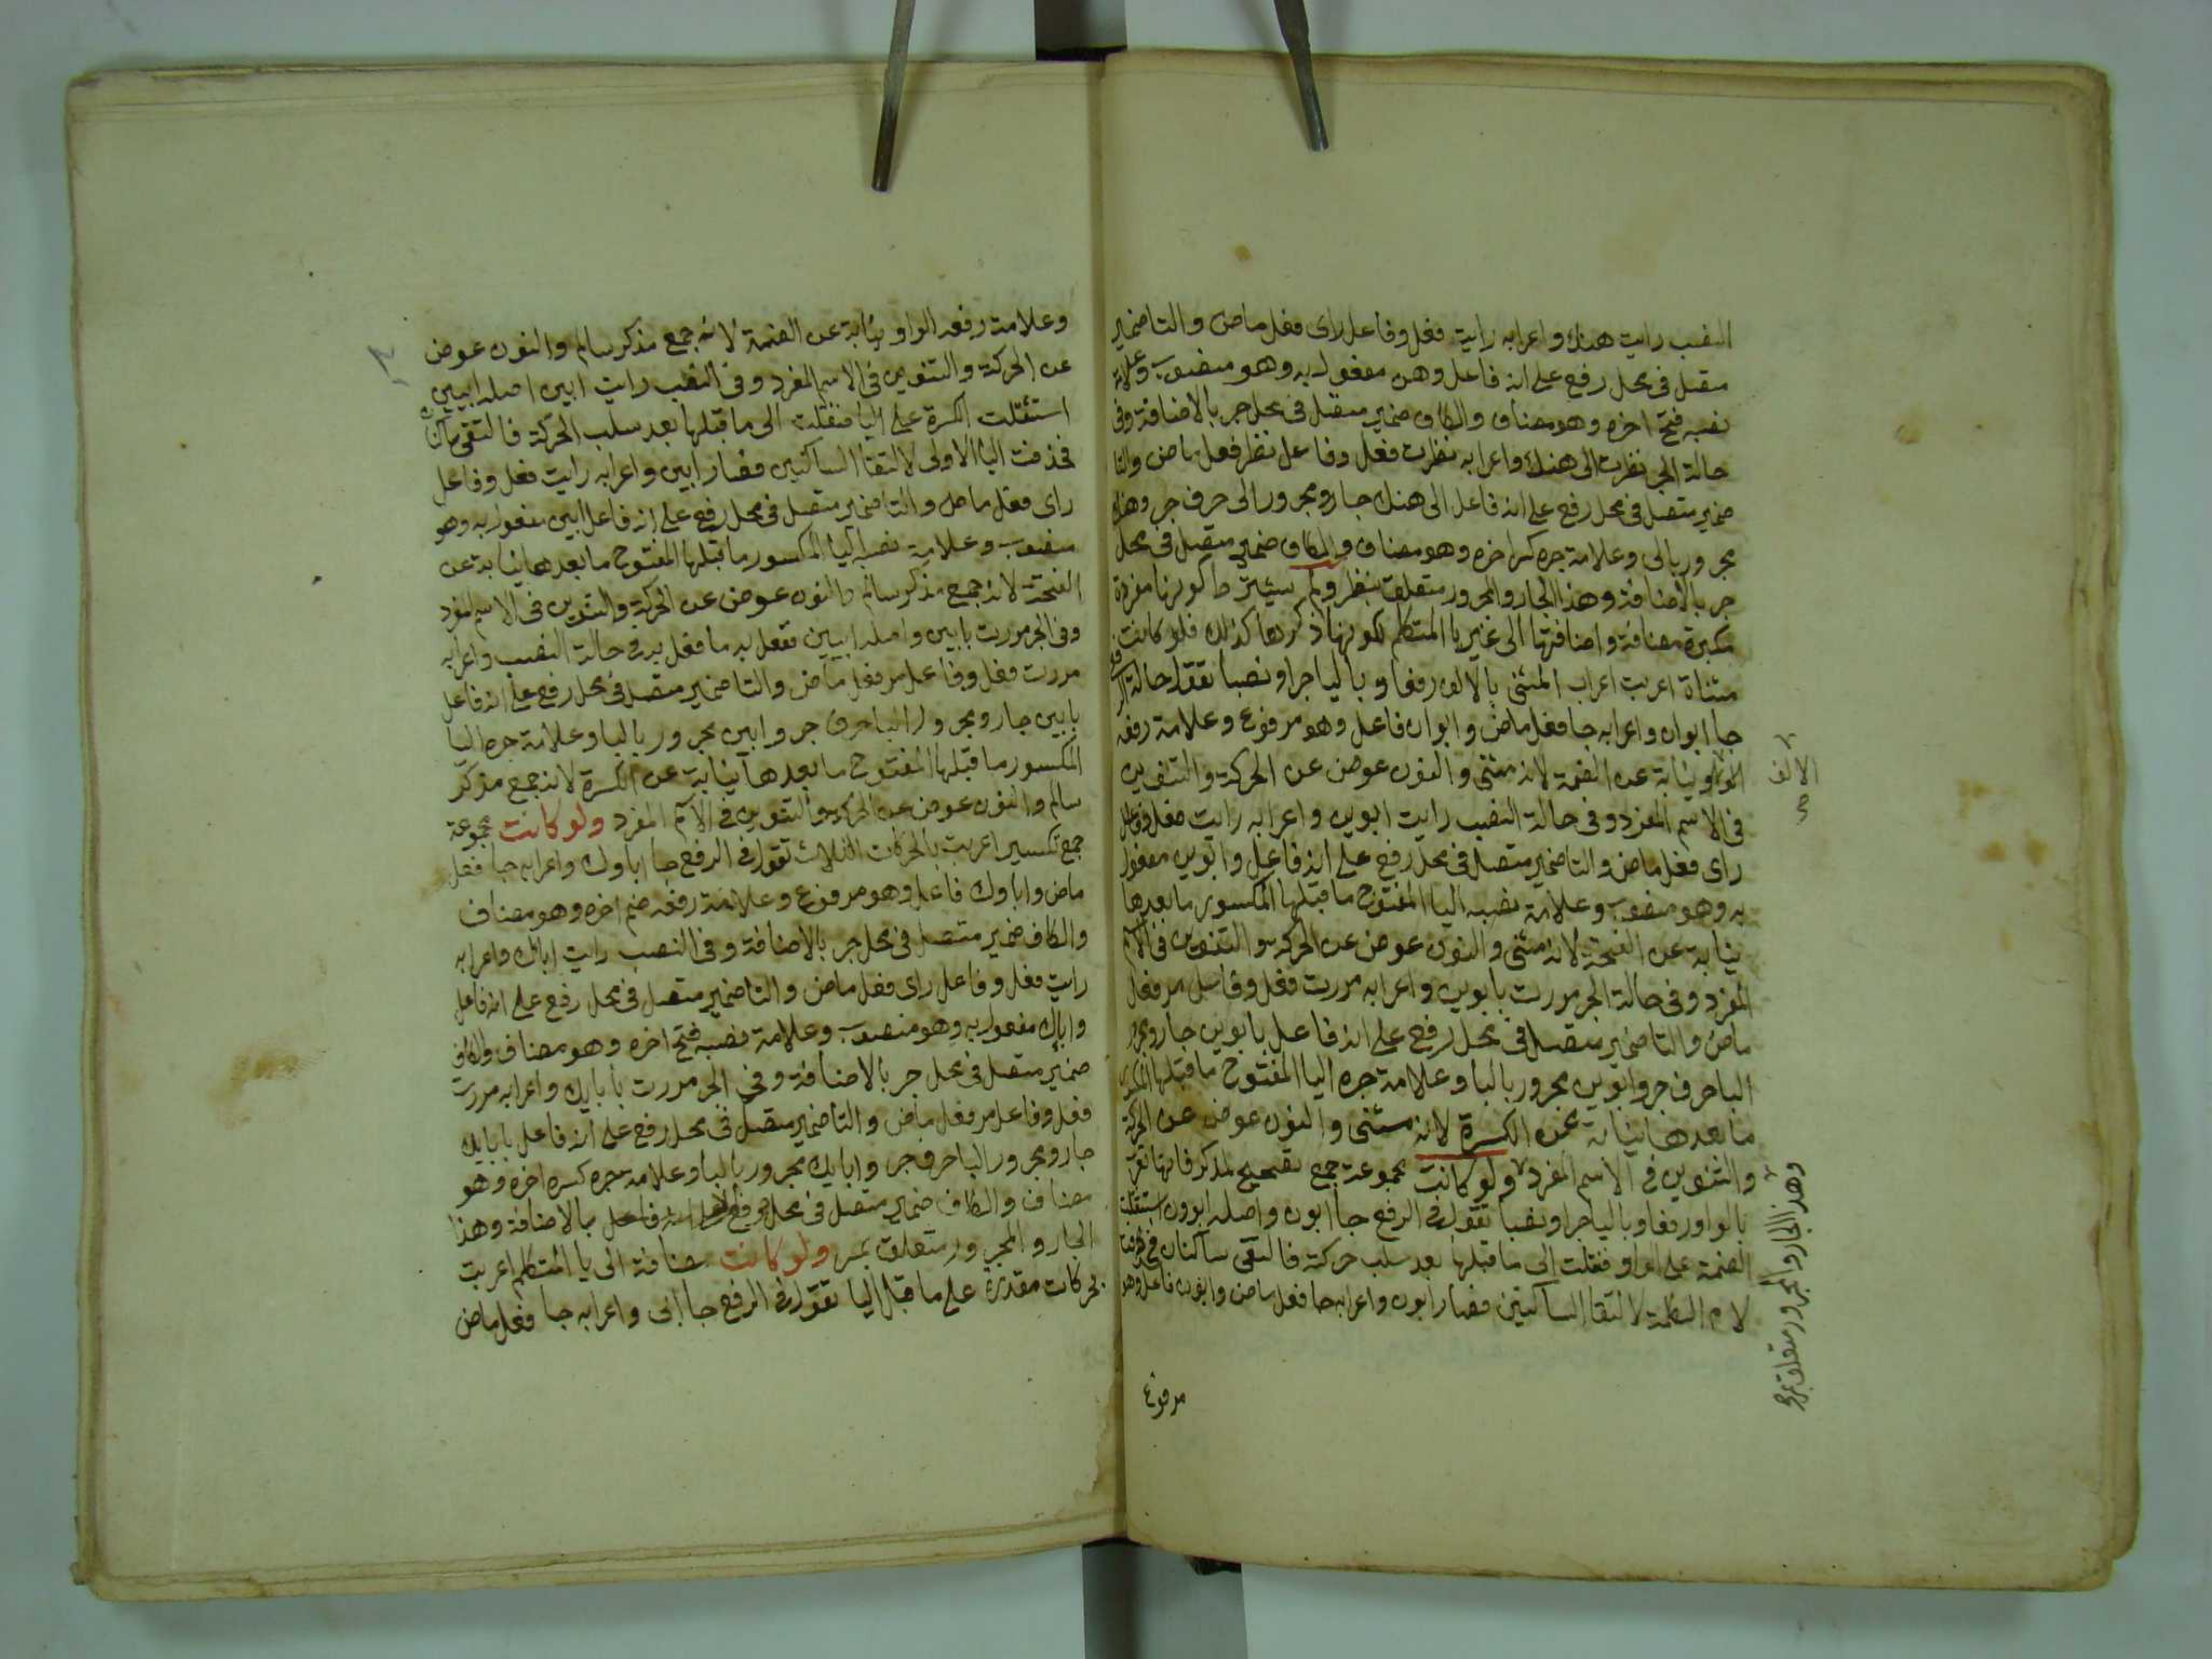 النصب رايت هنك واعرابه رايت فعل وفاعل راى فعل ماض والتا ضمير
متصل فى محل رفع على انه فاعل وهن مفعول به وهو منصوب وعلامة
نصبه فتح اخره وهو مضاف والكاف ضمير متصل فى محل جر بالاضافة وفى
حالة الجر نظرت الى هنك واعرابه نظرت فعل وفاعل نظر فعل ماض والتا
ضمير متصل فى محل رفع على انه فاعل الى هنك جار ومجرور الى حرف جر وهنك
مجرور بالى وعلامة جره كسر اخره وهو مضاف والكاف ضمير متصل فى محل
جر بالاضافة وهذا الجار والمجرور متعلق بنظر ولم يشترط كونها مفردة
مكبرة مضافة واضافتها الى غير يا المتكلم لكونها ذكرها كذلك فلو كانت
مثناة اعربت اعراب المثنى بالالف رفعا وباليا جرا ونصبا تقول حالة الرفع
جا ابوان واعرابه جا فعل ماض وابوان فاعل وهو مرفوع وعلامة رفعه
الواو نيابة عن الضمة لانه مثنى والنون عوض عن الحركة والتنوين
الالف
صح
فى الاسم المفرد وفى حالة النصب رايت ابوين واعرابه رايت فعل وفاعل
راى فعل ماض والتا ضمير متصل فى محل رفع على انه فاعل وابوين مفعول
به وهو منصوب وعلامة نصبه اليا المفتوح ما قبلها المكسور ما بعدها
نيابة عن الفتحة لانه مثنى والنون عوض عن الحركة والتنوين فى الاسم
المفرد وفى حالة الجر مررت بابوين واعرابه مررت فعل وفاعل مر فعل
ماض والتا ضمير متصل فى محل رفع على انه فاعل بابوين جار ومجرور
البا حرف جر وابوين مجرور بالبا وعلامة جره اليا المفتوح ما قبلها المكسور
ما بعدها نيابة عن الكسرة لانه مثنى والنون عوض عن الحركة
والتنوين فى الاسم المفرد ولو كانت مجموعة جمع تصحيح لمذكر فانها تعرب
وهذا الجار والمجرور متعلق بمر صح
بالواو رفعا وباليا جرا ونصبا تقول فى الرفع جا ابون واصله ابوون استثقلت
الضمة على الواو فنقلت الى ما قبلها بعد سلب حركة فالتقى ساكنان فحذفت
لام الكلمة لالتقا الساكنين فصار ابون واعرابه جا فعل ماض وابون فاعل وهو
مرفوع
وعلامة رفعه الواو نيابة عن الضمة لانه جمع مذكر سالم والنون عوض
عن الحركة والتنوين فى الاسم المفرد وفى النصب رايت ابين اصله ابيين
استثقلت الكسرة على اليا فنقلت الى ما قبلها بعد سلب الحركة فالتقى ساكنان
فحذفت اليا الاولى لالتقا الساكنين فصار ابين واعرابه رايت فعل وفاعل
راى فعل ماض والتا ضمير متصل فى محل رفع على انه فاعل ابين مفعول به وهو
منصوب وعلامة نصبه اليا المكسور ما قبلها المفتوح ما بعدها نيابة عن
الفتحة لانه جمع مذكر سالم والنون عوض عن الحركة والتنوين فى الاسم المفرد
وفى الجر مررت بابين واصله ابيين تفعل به ما فعل به فى حالة النصب واعرابه
مررت فعل وفاعل مر فعل ماض والتا ضمير متصل فى محل رفع على انه فاعل
بابين جار ومجرور البا حرف جر وابين مجرور بالبا وعلامة جره اليا
المكسور ما قبلها المفتوح ما بعدها نيابة عن الكسرة لانه جمع مذكر
سالم والنون عوض عن الحركة والتنوين فى الاسم المفرد ولو كانت مجموعة
جمع تكسير اعربت بالحركات الثلاث تقول فى الرفع جا اباوك واعرابه جا فعل
ماض واباوك فاعل وهو مرفوع وعلامة رفعه ضم اخره وهو مضاف
والكاف ضمير متصل فى محل جر بالاضافة وفى النصب رايت اباك واعرابه
رايت فعل وفاعل راى فعل ماض والتا ضمير متصل فى محل رفع على انه فاعل
واباك مفعول به وهو منصوب وعلامة نصبه فتح اخره وهو مضاف والكاف
ضمير متصل فى محل جر بالاضافة وفى الجر مررت بابايك واعرابه مررت
فعل وفاعل مر فعل ماض والتا ضمير متصل فى محل رفع على انه فاعل بابايك
جار ومجرور البا حرف جر وابايك مجرور بالبا وعلامة جره كسر اخره وهو
مضاف والكاف ضمير متصل فى محل بالاضافة وهذا
الجار والمجرور متعلق بمر ولو كانت مضافة الى يا المتكلم اعربت
بحركات مقدرة على ما قبل اليا تقول فى الرفع جا ابى واعرابه جا فعل ماض